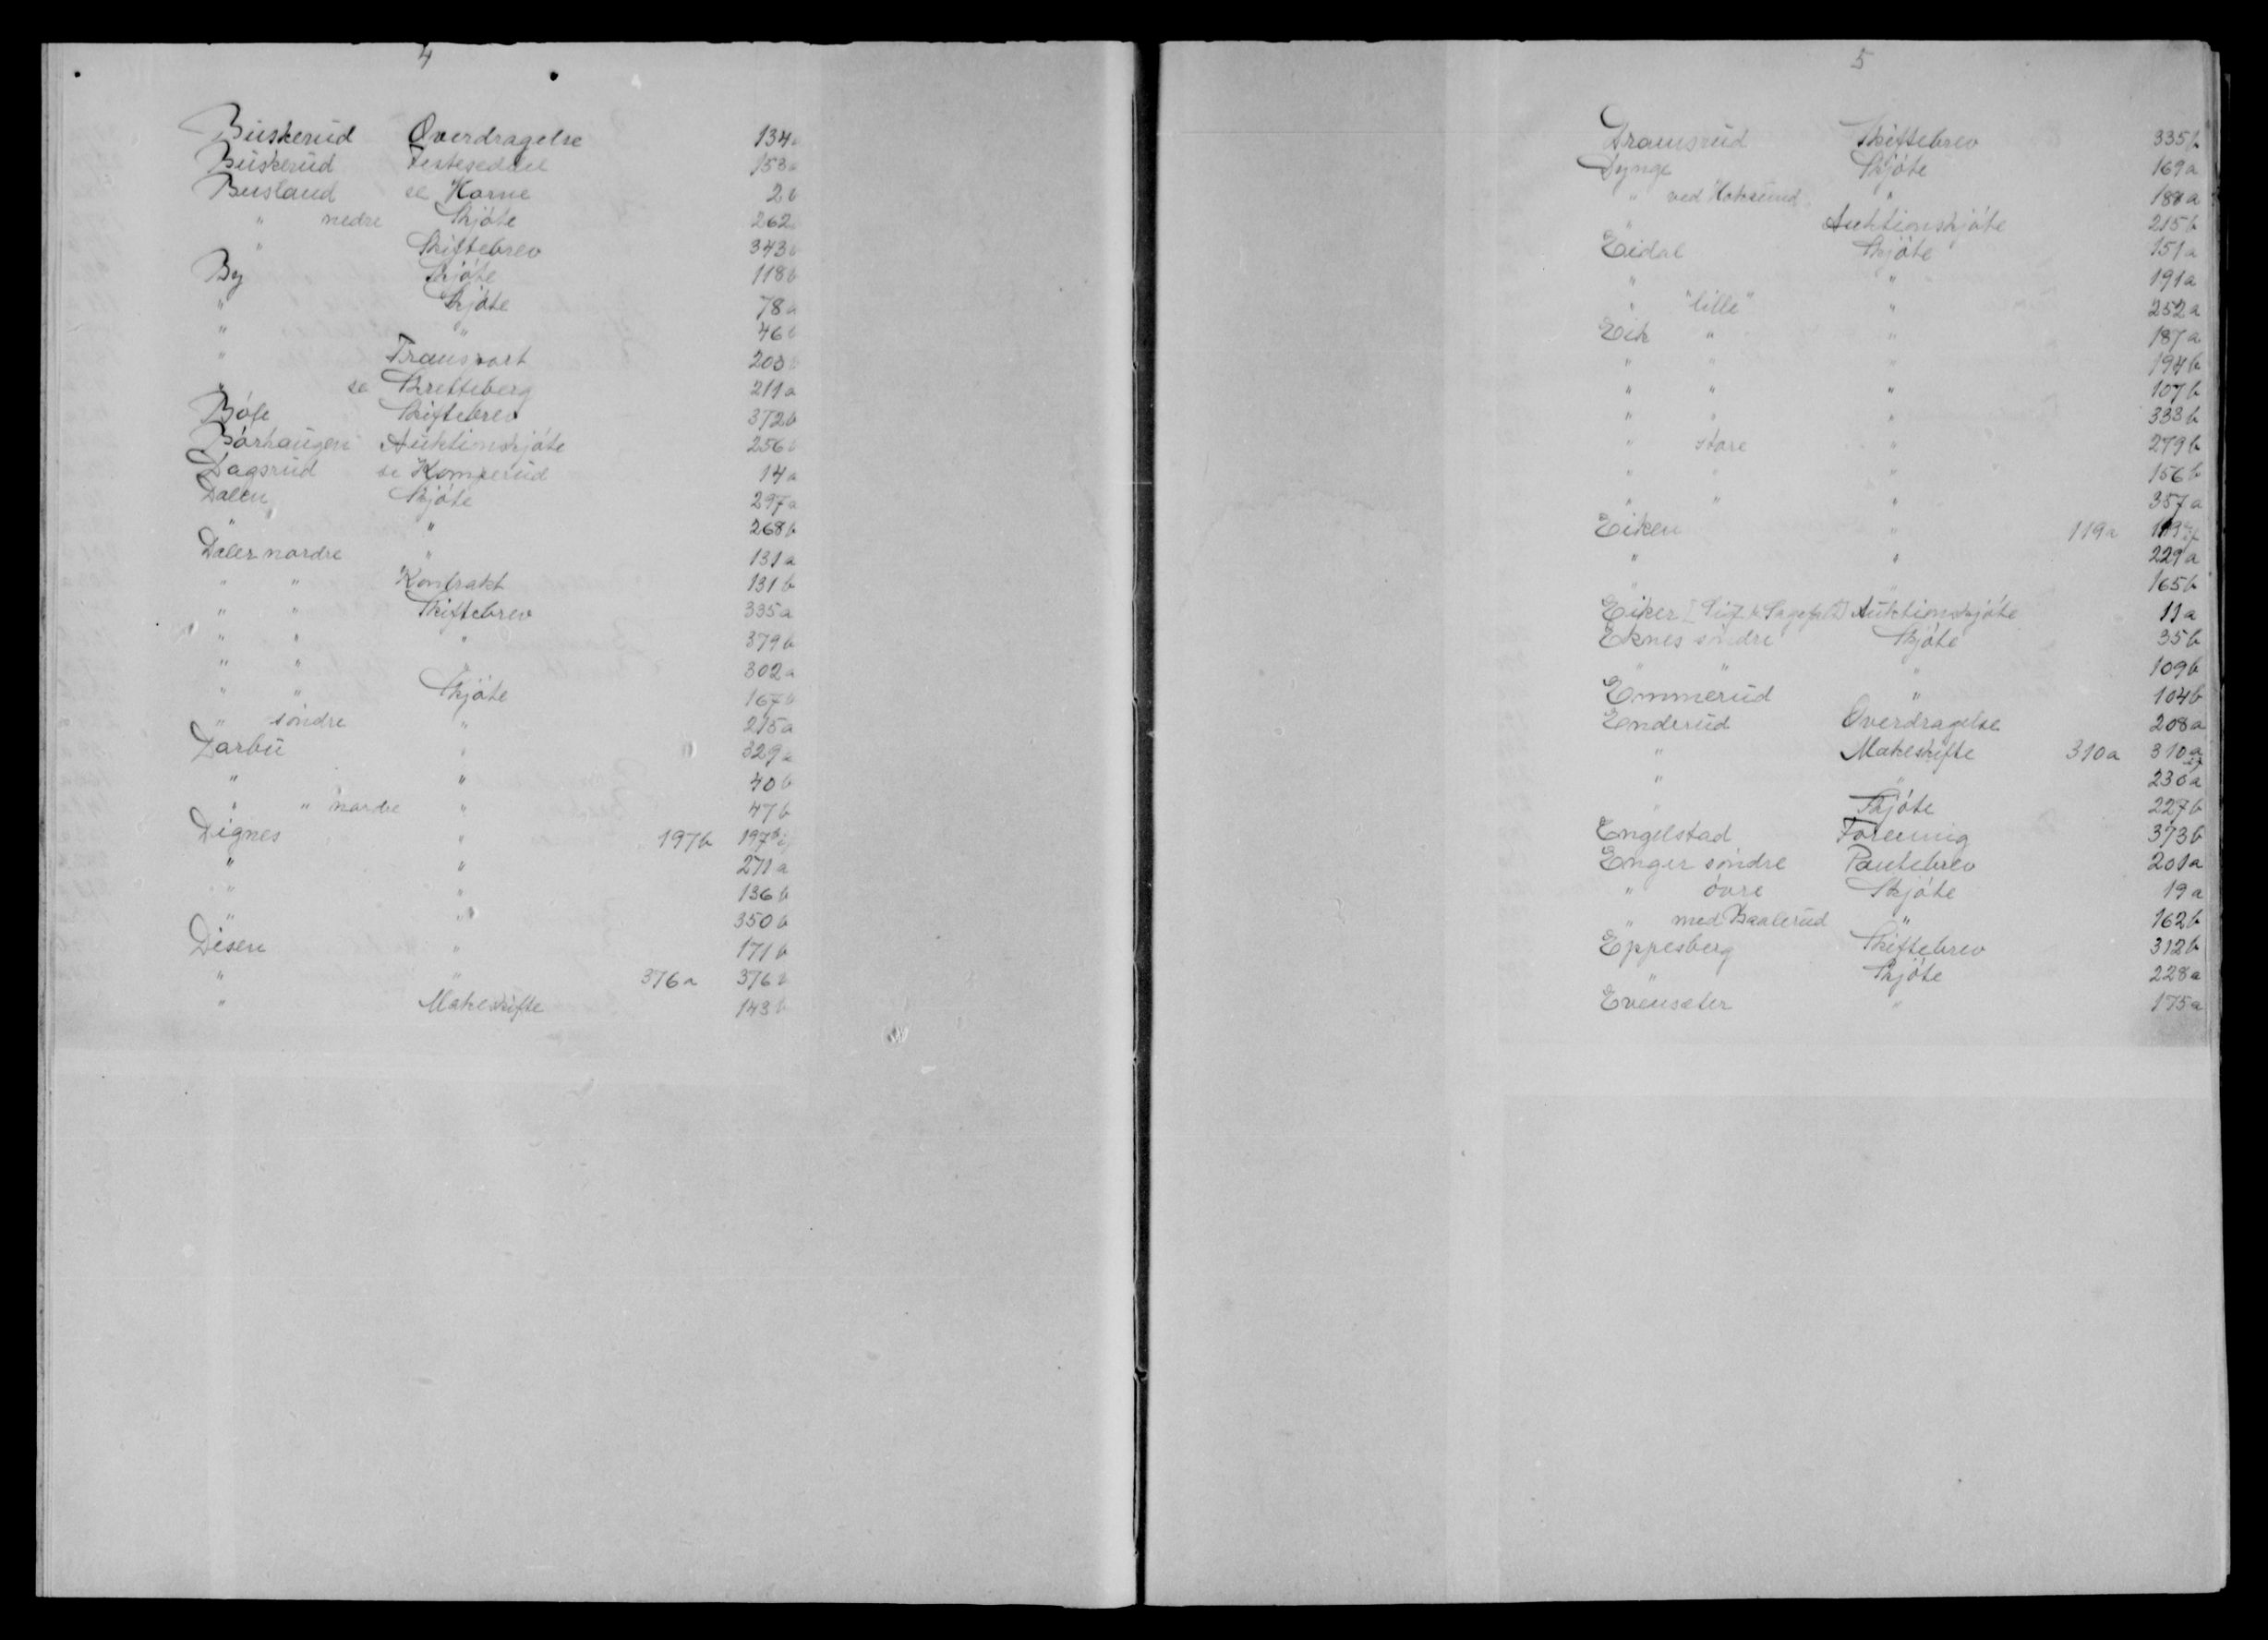 4
Buskerud Overdragelse 134
Buskerud Festeseddel 153a
Busland se Horne 2b
" nedre Skjöte 262
" Skiftebrev 343b
By Skjöte 118b
" Skjöte 78a
" " 46b
" Transport 203b
" se Skretteberg 211a
Böle Skiftebrev 372b
Börhaugen Auktionskjöte 256b
Dagsrud se Komperud 14a
Dalen Skjöte 297a
" " 268b
Daler nordre " 131a
" " Kontrakt 131b
" " Skiftebrev 335a
" " " 379b
" " 302a
" " Skjöte 167b
" söndre " 215a
Darbu " 329a
" " 40b
" " nordre " 47b
Dignes " 197b 197b
" " 271a
" " 136b
" " 350b
Disen " 171b
" " 376a 376b
" Makeskifte 143b
5
Dramsrud Skiftebrev 335b
Dynge Skjöte 169a
" ved Hoksund " 188a
" Auktionskjöte 215b
Eidal Skjöte 151a
" " 191a
" "lille" " 252a
Eik " " 187a
" " " 194b
" " " 107b
" " " 333b
" store " 279b
" " " 156b
" " " 357a
Eiken " 119a 119
" " 229a
" " 165b
Eiker Auktionskjöte 11a
Eknes söndre Skjöte 35b
" " " 109b
Emmerud " 104b
Enderud Overdragelse 208a
" Makeskifte 310a 310a
" " 230a
" Skjöte 227b
Engelstad Forening 373b
Enger söndre Pantebrev 201a
" övre Skjöte 19a
" med Baalerud " 162b
Eppesberg Skiftebrev 312b
" Skjöte 228a
Evensæter " 175a